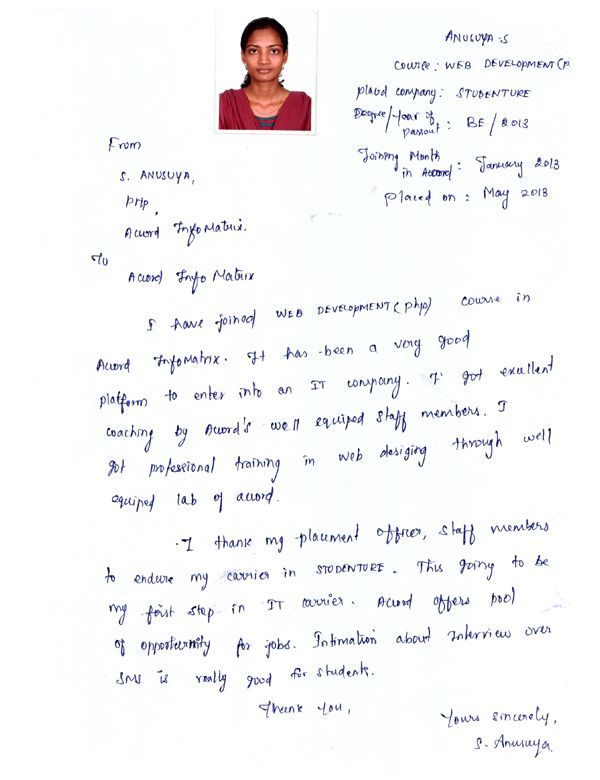 ANUSUYA.S
Course: WEB DEVELOPMENT(P
placed company: STUDENTURE
Degree/Year of passout : BE/2013
Joining Month in Accord : January 2013
placed on : May 2013
From
S. ANUSUYA,
PHP,
Accord InfoMatrix.
To
Accord Info Matrix
I have joined WEB DEVELOPMENT(php) course in
Accord InfoMatrix. It has been a very good
platform to enter into an IT company. I got excellent
coaching by Accord's well equiped staff members. I
got professional training in web desiging through well
equiped lab of accord.
I thank my placement officer, staff members
to endure my carrier in STUDENTURE. This going to be
my first step in IT carrier. Accord offers pool
of opportunity for jobs. Intimation about Interview over
SMS is really good for students.
Thank You,
Yours sincerely,
S. Anusuya